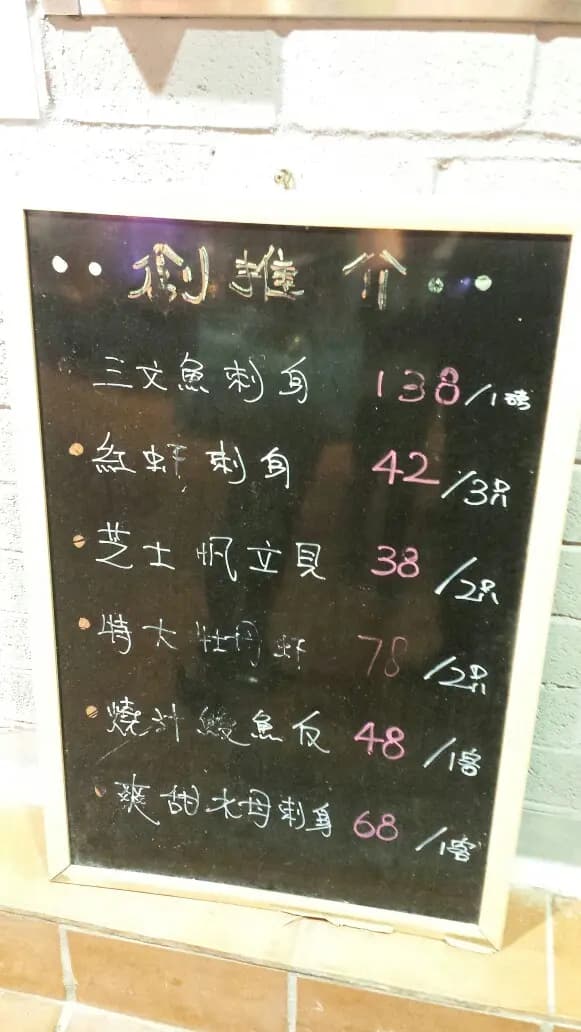 創推介
三文魚刺身 138/1磅
紅虾刺身 42/3只
芝士帆立貝 38/2只
特大牡丹虾 78/2只
燒汁鰻魚反 48/1客
爽甜水母刺身 68/1客